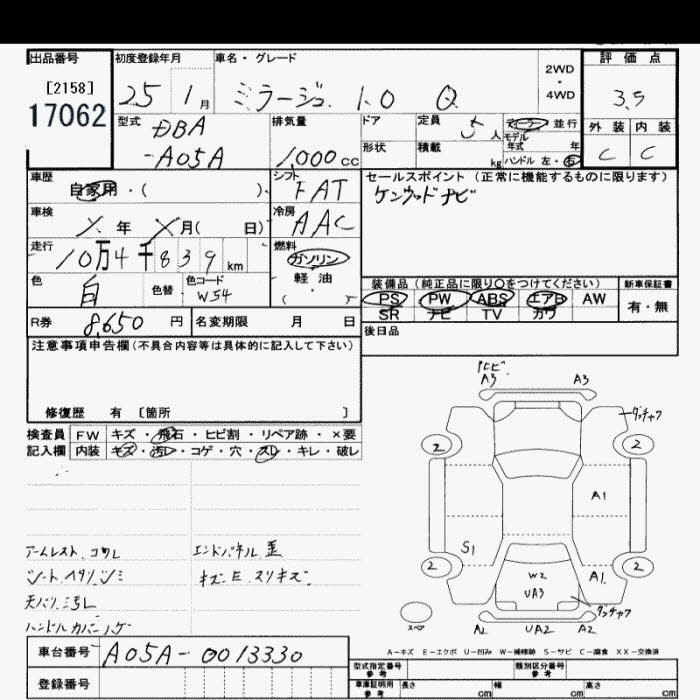 出品番号 初度登録年月 車名・グレード 評価点
[2158] 2WD
17062 25 1月 ミラージュ 1.0 G ・ 3.5
4WD
型式 排気量 ドア 定員 5人 ディーラー 並行 外装 内装
DBA モデル
年式 年
-A05A 1,000cc 形状 積載 kg ハンドル 左・右 C C
車歴 シフト セールスポイント (正常に機能するものに限ります)
自家用・( ) FAT ケンウッドナビ
車検 冷房
X年 X月( 日) AAC
走行 燃料
10万4千839km ガソリン
色 色替 色コード 軽油 装備品(純正品に限り○をつけてください) 新車保証書
白 W54 ( ) PS PW ABS エアB AW 有・無
SR ナビ TV カワ
R券 8,650円 名変期限 月 日 後日品
注意事項申告欄(不具合内容等は具体的に記入して下さい)
A3 A3
修復歴 有 [箇所 ]
検査員 FW キズ・飛石・ヒビ割・リペア跡・×要
記入欄 内装 キズ・汚レ・コゲ・穴・スレ・キレ・破レ
2 2
A1
S1
2 2
W2 A1
UA3
アームレスト コワレ エンドパネル 歪
シートヘタリ、シミ キズE スリキズ
天バリ汚レ
スペア A2 UA2 A2
A-キズ E-エクボ U-凹み W-補修跡 S-サビ C-腐食 XX-交換済
車台番号 A05A-0013330
型式指定番号 参考 類別区分番号 参考
登録番号 車庫証明用 参考 長さ cm 幅 cm 高さ cm